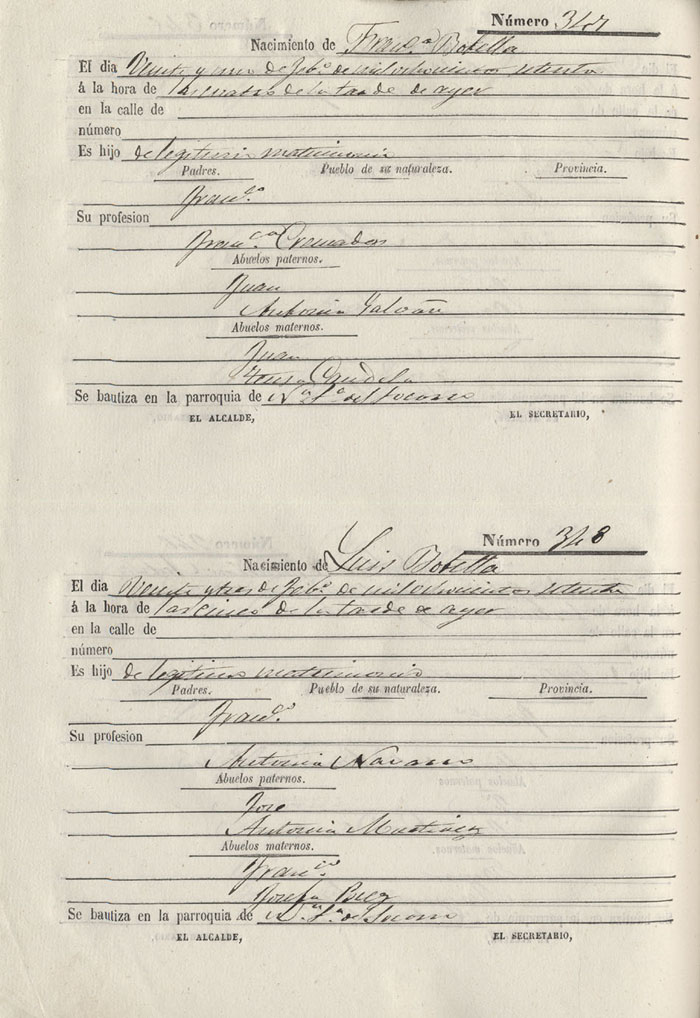 Número 347
Nacimiento de Fran.ca Botella
El dia Veinte y uno de Feb.o de mil ochocientos setenta
á la hora de las cuatro de la tarde de ayer
en la calle de
número
Es hijo de legitimo matrimonio
Padres. Pueblo de su naturaleza. Provincia.
Fran.co
Su profesion
Fran.ca Cremades
Abuelos paternos.
Juan
Antonia Galvañ
Abuelos maternos.
Juan
Teresa Candela
Se bautiza en la parroquia de N.a S.a del Socorro
EL ALCALDE, EL SECRETARIO,
Número 348
Nacimiento de Luis Botella
El dia Veinte y tres de Feb.o de mil ochocientos setenta
á la hora de las cinco de la tarde de ayer
en la calle de
número
Es hijo de legitimo matrimonio
Padres. Pueblo de su naturaleza. Provincia.
Fran.co
Su profesion
Antonia Navarro
Abuelos paternos.
Jose
Antonia Martinez
Abuelos maternos.
Fran.co
Josefa
Se bautiza en la parroquia de N.a S.a del Socorro
EL ALCALDE, EL SECRETARIO,